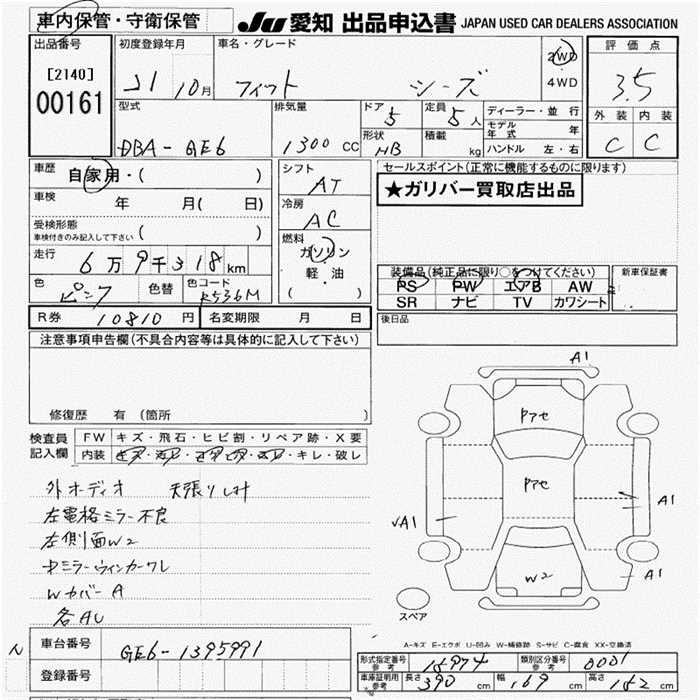 車内保管・守衛保管
JU 愛知 出品申込書 JAPAN USED CAR DEALERS ASSOCIATION
出品番号
[2140]
00161
初度登録年月
21 10月
車名・グレード
フィット シーズ
2WD
4WD
評価点
3.5
外装 内装
C C
型式
DBA-GE6
排気量
1300 CC
ドア
5
形状
HB
定員
5人
積載
kg
ディーラー・並行
モデル年式 年
ハンドル 左・右
車歴
自家用・( )
車検
年 月( 日)
受検形態
車検付きのみ記入して下さい ( )
走行
6万9千318km
色
ピンク
色替
色コード
R536M
シフト
AT
冷房
AC
燃料
ガソリン
軽・油
( )
セールスポイント(正常に機能するものに限ります)
★ガリバー買取店出品
装備品(純正品に限り○をつけてください)
PS PW エアB AW
SR ナビ TV カワシート
新車保証書
後日品
R券 10810円
名変期限 月 日
注意事項申告欄(不具合内容等は具体的に記入して下さい)
修復歴 有(箇所 )
検査員
記入欄
FW キズ・飛石・ヒビ割・リペア跡・X要
内装 キズ・汚レ・コゲ・穴・キレ・破レ
外オーディオ 天張りシミ
左電格ミラー不良
左側面W2
才ミラーウィンカーワレ
WカバーA
各AU
A1
Pアセ
Pアセ
W2
A1
√A1
A1
スペア
A-キズ E-エクボ U-凹み W-補修跡 S-サビ C-腐食 XX-交換済
N
車台番号
GE6-1395991
登録番号
形式指定番号
参考
15974
類別区分番号
参考
0001
車庫証明用
参考
長さ 390 cm
幅 169 cm
高さ 152 cm